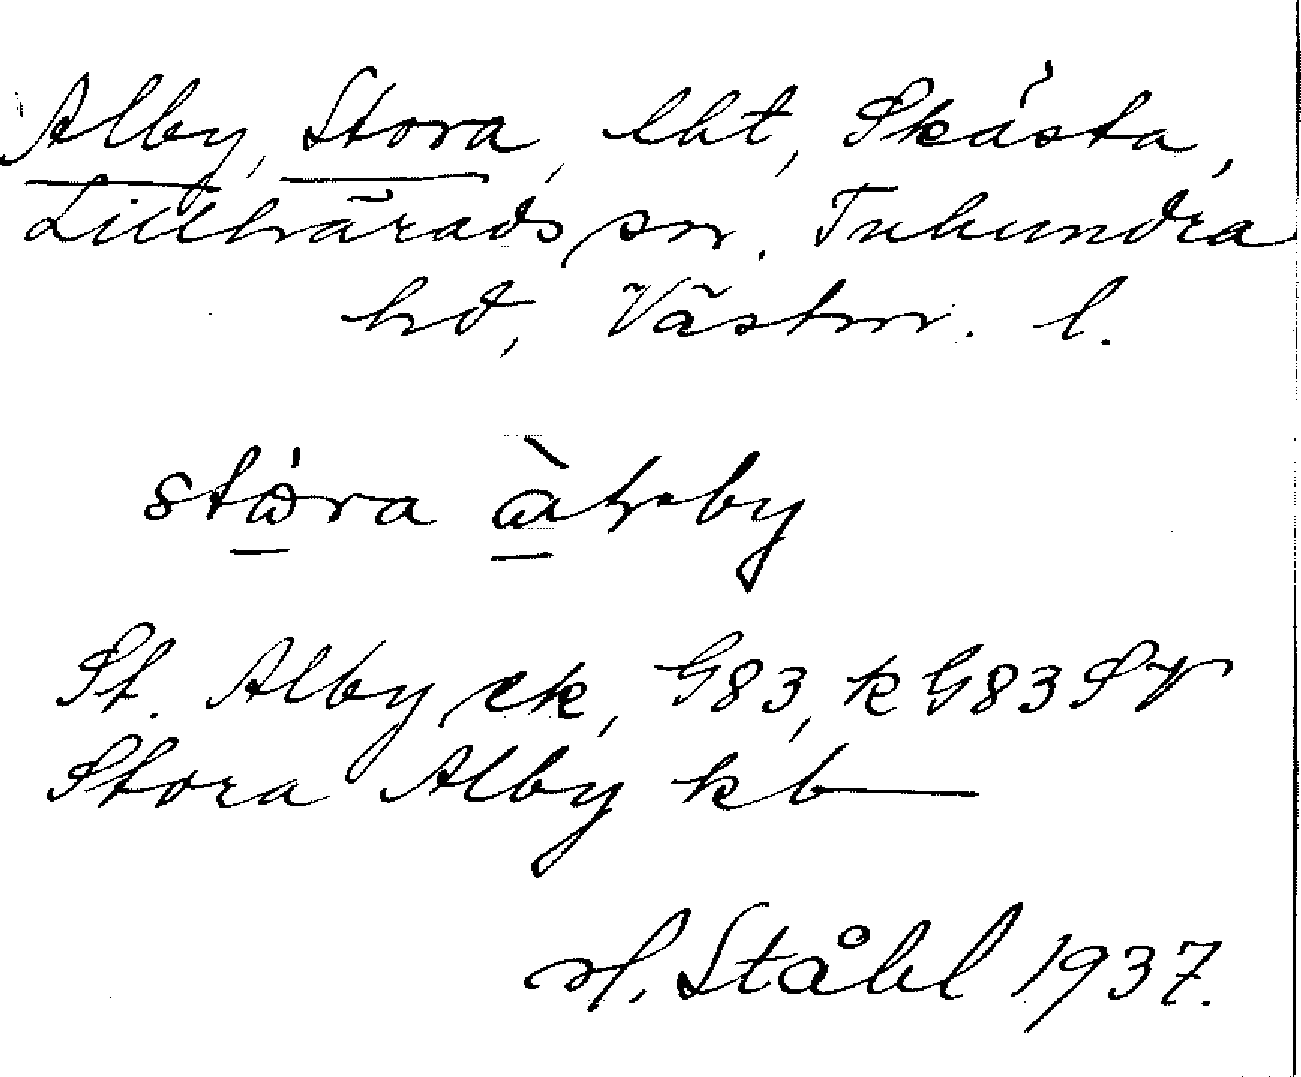 Alby, Stora, lht, Skästa,
Lillhärads sn. Tuhundra
hd, Västm. l.
störa àlby
St. Alby ek, G83, k G83 SV
Stora Alby kb
H. Ståhl 1937.